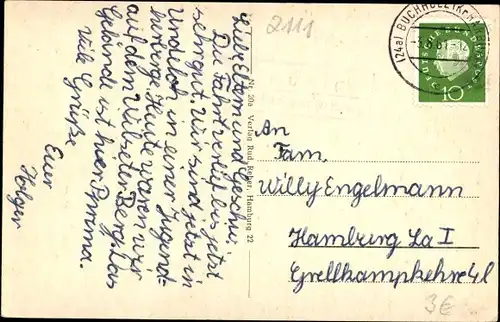 2111
Liebe Eltern und Geschw.
Die Fahrt verlief bis jetzt
sehr gut. Wir sind jetzt in
Undeloh in einer Jugend-
herberge. Heute waren wir
auf dem Wilseter Berg. Das
Gelände ist hier Prima.
Viele Grüße
Euer
Holger
Nr. 206 Verlag Rud. Reher, Hamburg 22
(24a) BUCHHOLZ (KR HARBURG)
DEUTSCHE BUNDESPOST
10
An
Fam.
Willy Engelmann
Hamburg La I
Grellkampkehre 4l
3€